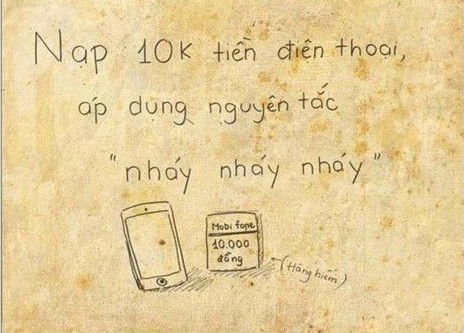 Nạp 10K tiền điện thoại,
áp dụng nguyên tắc
"nháy nháy nháy"
Mobi fone
10.000
đồng
(Hàng hiếm)